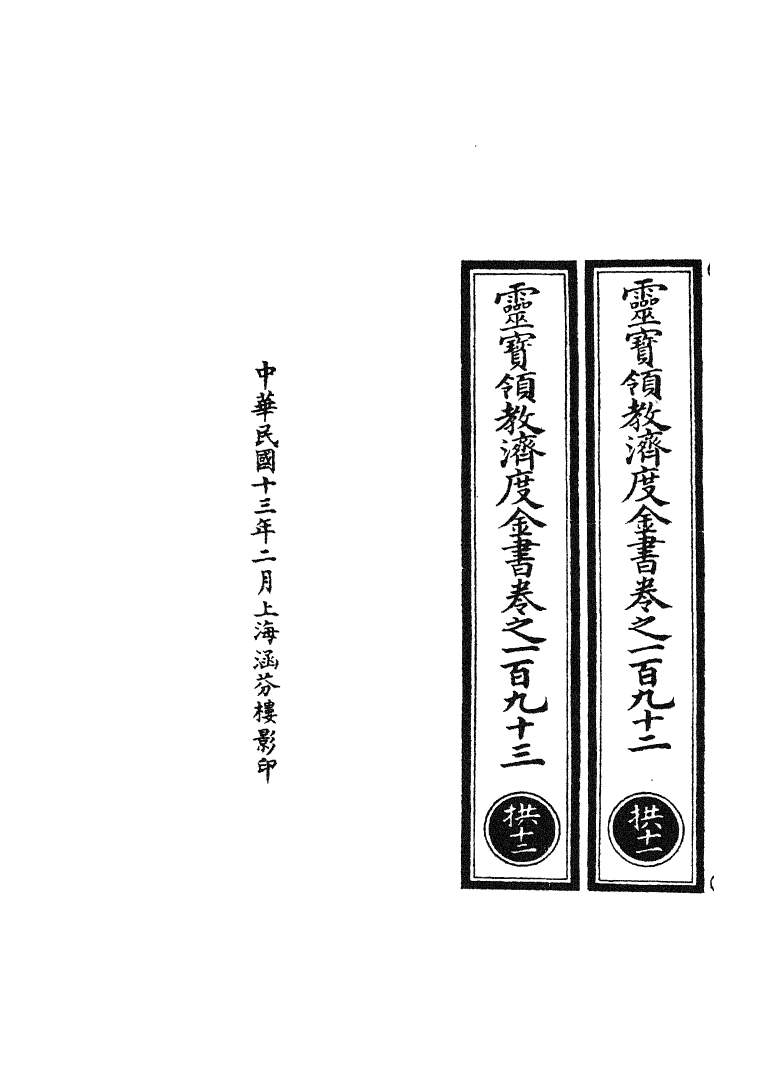 靈寶領教濟度金書卷之一百九十二
拱十一
靈寶領教濟度金書卷之一百九十三
拱十二
中華民國十三年二月上海涵芬樓影印